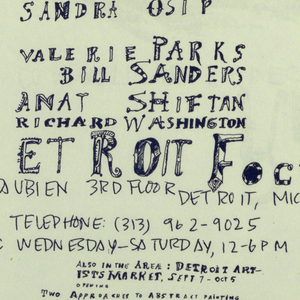 SANDRA OSIP
VALERIE PARKS
BILL SANDERS
ANAT SHIFTAN
RICHARD WASHINGTON
ETROIT Foc
AUBIEN 3RD FLOOR DETROIT, MIC
TELEPHONE: (313) 962-9025
WEDNESDAY-SATURDAY, 12-6 PM
ALSO IN THE AREA: DETROIT ART-
ISTS MARKET, SEPT 7-OCT 5
OPENING
TWO APPROACHES TO ABSTRACT PAINTING